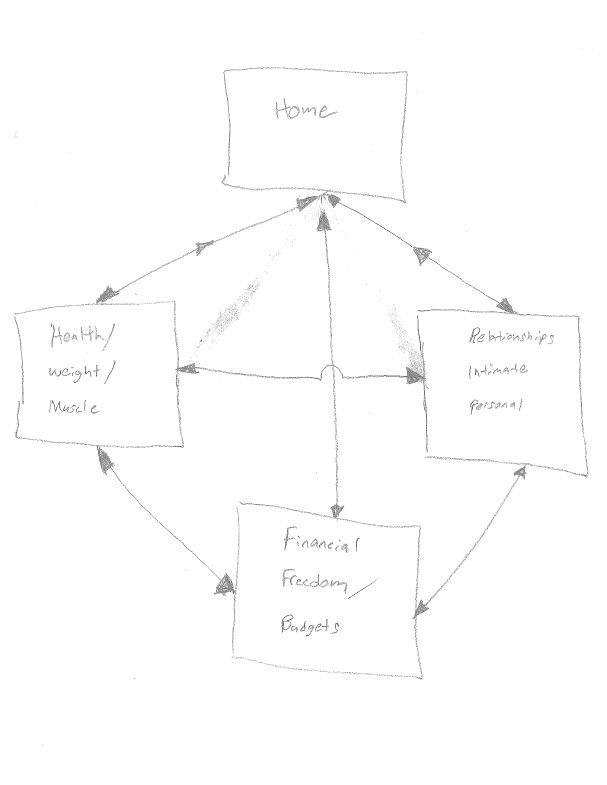 Home
Health/
weight/
Muscle
Relationships
Intimate
Personal
Financial
Freedom/
Budgets